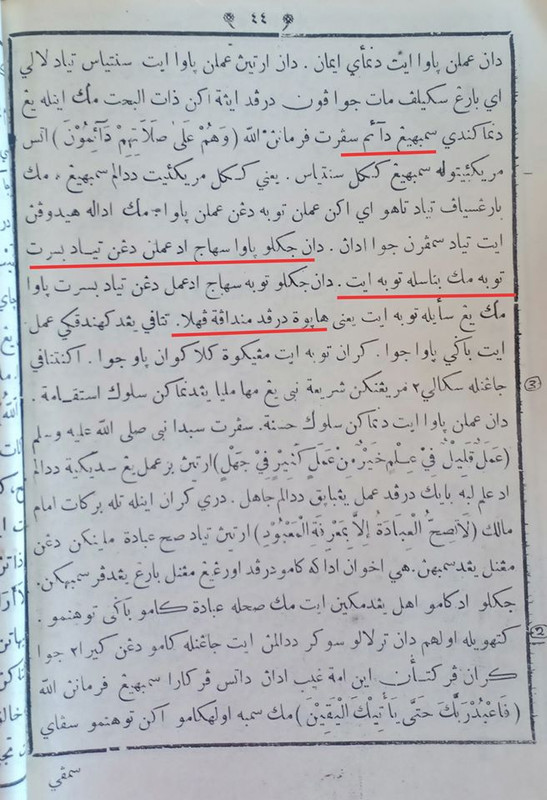 ٤٤
دان عملن ڤاوا ايت دنماٴي ايمان . دان ارتيڽ عملن ڤاوا ايت سنتياس تياد لالي
اي بارڠ سکيلف مات جوا ڤون درڤد ايڠة اکن ذات البحت مك اينله يڠ
دنماکندي سمبهيڠ دآئم سڤرت فرمان الله (وَهُمْ عَلَىٰ صَلَاتِهِمْ دَآئِمُوْنَ) اتس
مريکئيتوله سمبهيڠ ککل سنتياس . يعني ککل مريکئيت ددالم سمبهيڠ، مك
بارڠسياڤ تياد تاهو اي اکن عملن توبه دڠن عملن ڤاوا مك اداله هيدوڤن
ايت تياد سمڤرن جوا اداڽ . دان جکلو ڤاوا سهاج ادعملن دڠن تياد بسرت
توبه مك بناسله توبه ايت . دان جکلو توبه سهاج ادعمل دڠن تياد بسرت ڤاوا
مك يڠ سأيله توبه ايت يعني هاڤوة درڤد منداڤة ڤهلا . تتاڤي يڤد کهندقکي عمل
ايت باݢي ڤاوا جوا . کران توبه ايت مڠيکوة کلاکوان ڤاو جوا . اکنتتاڤي
جاڠنله سکالي٢ مريڠنکن شريعة نبي يڠ مها مليا يڤدنماکن سلوك استقامة .
دان عملن ڤاوا ايت دنماکن سلوك حسنة . سڤرت سبدا نبي صلى الله عليه وسلم
(عَمَلٌ قَلِيْلٌ فِيْ عِلْمٍ خَيْرٌ مِنْ عَمَلٍ كَثِيْرٍ فِيْ جَهْلٍ) ارتيڽ برعمل يڠ سديکية ددالم
اد علم ليه بايك درڤد عمل يڠباڽق ددالم جاهل . دري کران اينله تله برکات امام
مالك (لَا تَصِحُّ الْعِبَادَةُ إِلَّا بِمَعْرِفَةِ الْمَعْبُوْدِ) ارتيڽ تياد صح عبادة ملينکن دڠن
مڠنل يڤدسمبهن. هي اخوان اداکه کامو درڤد اورڠيڠ مڠنل بارڠ يڤدڤرسمبهکن.
جکلو ادکامو اهل يڤدمکين ايت مك صحله عبادة کامو باݢي توهنمو .
کتهويله اولهم دان ترلالو سوکر ددالمن ايت جاڠنله کامو دڠن کيرا٢ جوا
کران ڤرکتأن اين امة غيب اداڽ داتس ڤرکارا سمبهيڠ فرمانن الله
(فَاعْبُدْ رَبَّكَ حَتَّى يَأْتِيَكَ الْيَقِيْنَ) مك سمبه اولهکامو اکن توهنمو سڤاي
سمڤي